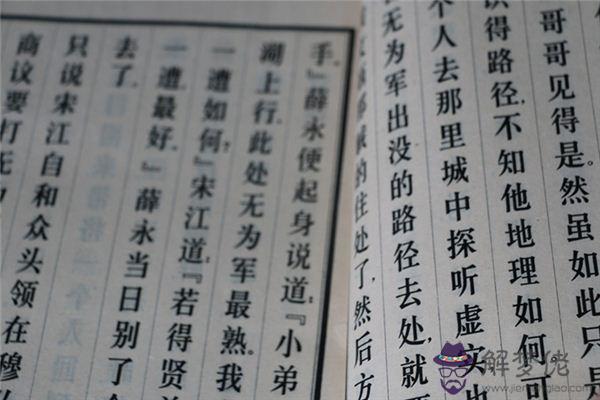 哥哥见得是。然虽如此,只是
识得路径,不知他地理如何
个人去那里城中探听虚实
无为军出没的路径去处,就
的住处了,然后方
手。』薛永便起身说道:『小弟
湖上行,此处无为军最熟。我
一遭如何?』宋江道:『若得贤
一遭最好。』薛永当日别了
去了。
只说宋江自和众头领在穆
商议要打无
解梦佬
www.jiemenglao.com